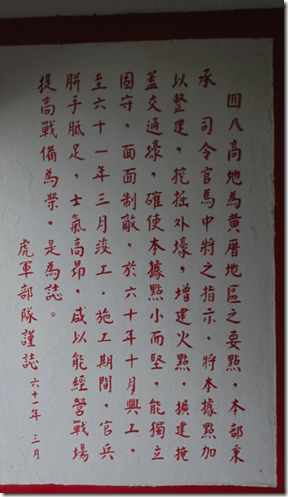 四八高地為黃厝地區之要點，本部秉
承　司令官馬中將之指示，將本據點加
以整建，挖掘外壕，增建火點，擴建掩
蓋交通壕，確使本據點小而堅，能獨立
固守，面面制敵，於六十年十月興工，
至六十一年三月竣工．施工期間，官兵
胼手胝足，士氣高昂，咸以能經營戰場
提高戰備為榮，是為誌。
虎軍部隊謹誌　六十一年　三月